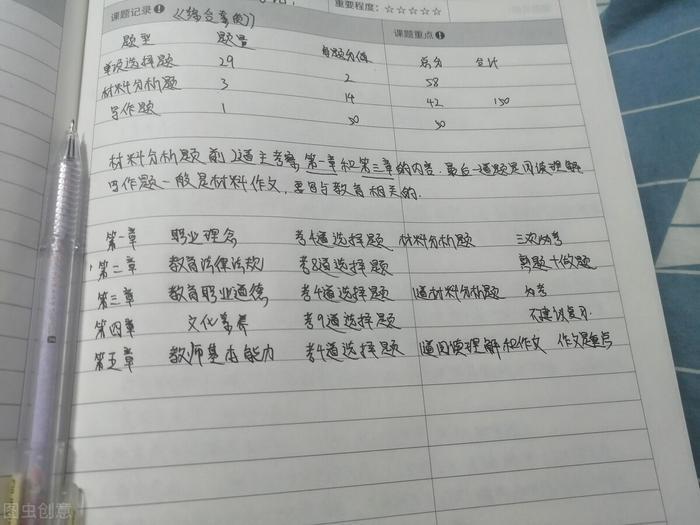 重要程度：☆☆☆☆☆
课题记录❶ 《综合素质》
课题重点❶
题型 题量 每题分值 总分 合计
单项选择题 29 2 58
材料分析题 3 14 42 150
写作题 1 50 50
材料分析题前2道主考察,第一章和第三章的内容.最后一道题是阅读理解
写作题一般是材料作文,要写与教育相关的.
第一章 职业理念 考4道选择题 材料分析题 三次必考
第二章 教育法律法规 考8道选择题 真题+做题
第三章 教育职业道德 考4道选择题 1道材料分析题 必考
第四章 文化素养 考9道选择题 不建议复习.
第五章 教师基本能力 考4道选择题 1道阅读理解和作文 作文是重点
图虫创意